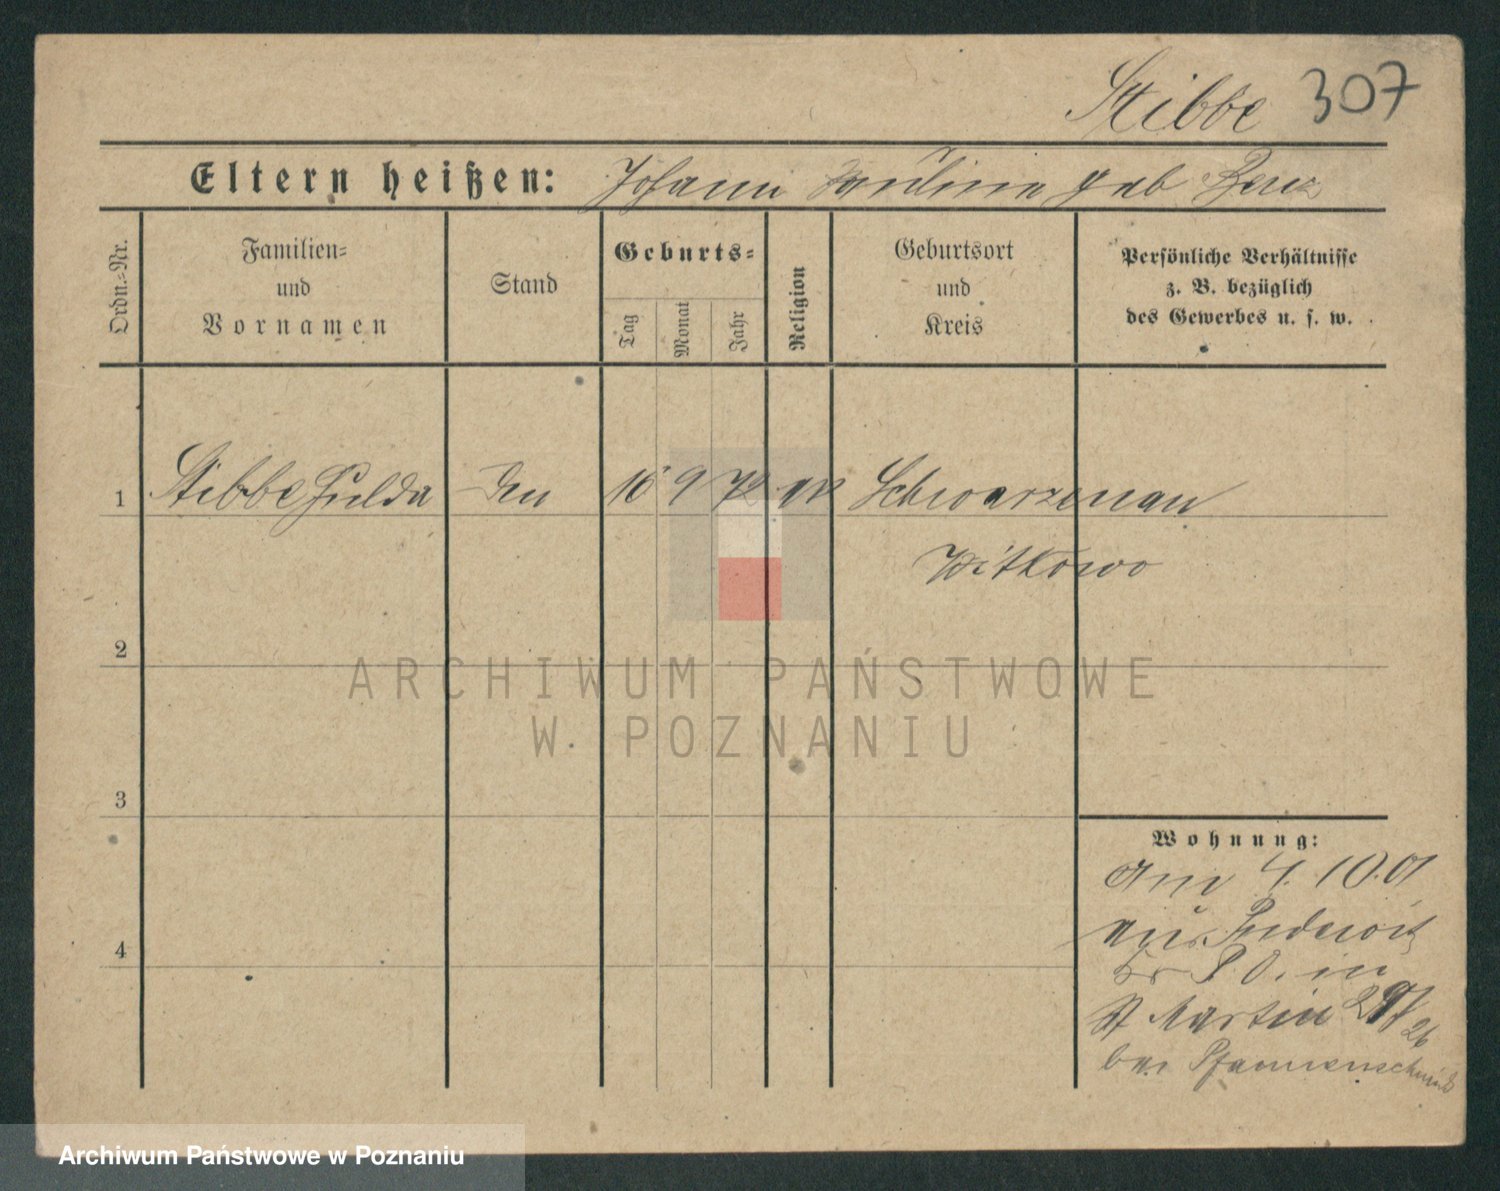 Stibbe 307
Eltern heißen: Johann Pauline geb
Ordn.-Nr.
Familien-
und
Vornamen
Stand
Geburts-
Tag
Monat
Jahr
Religion
Geburtsort
und
Kreis
Persönliche Verhältnisse
z. B. bezüglich
des Gewerbes u. s. w.
1 Stibbe Hulda 16 9 72 Schwarzenau
Witkowo
2
ARCHIWUM PAŃSTWOWE
W POZNANIU
3
Wohnung:
Am 4.10.01
aus
P O. in
4
St Martin
26
bei Pfannenschmidt
Archiwum Państwowe w Poznaniu